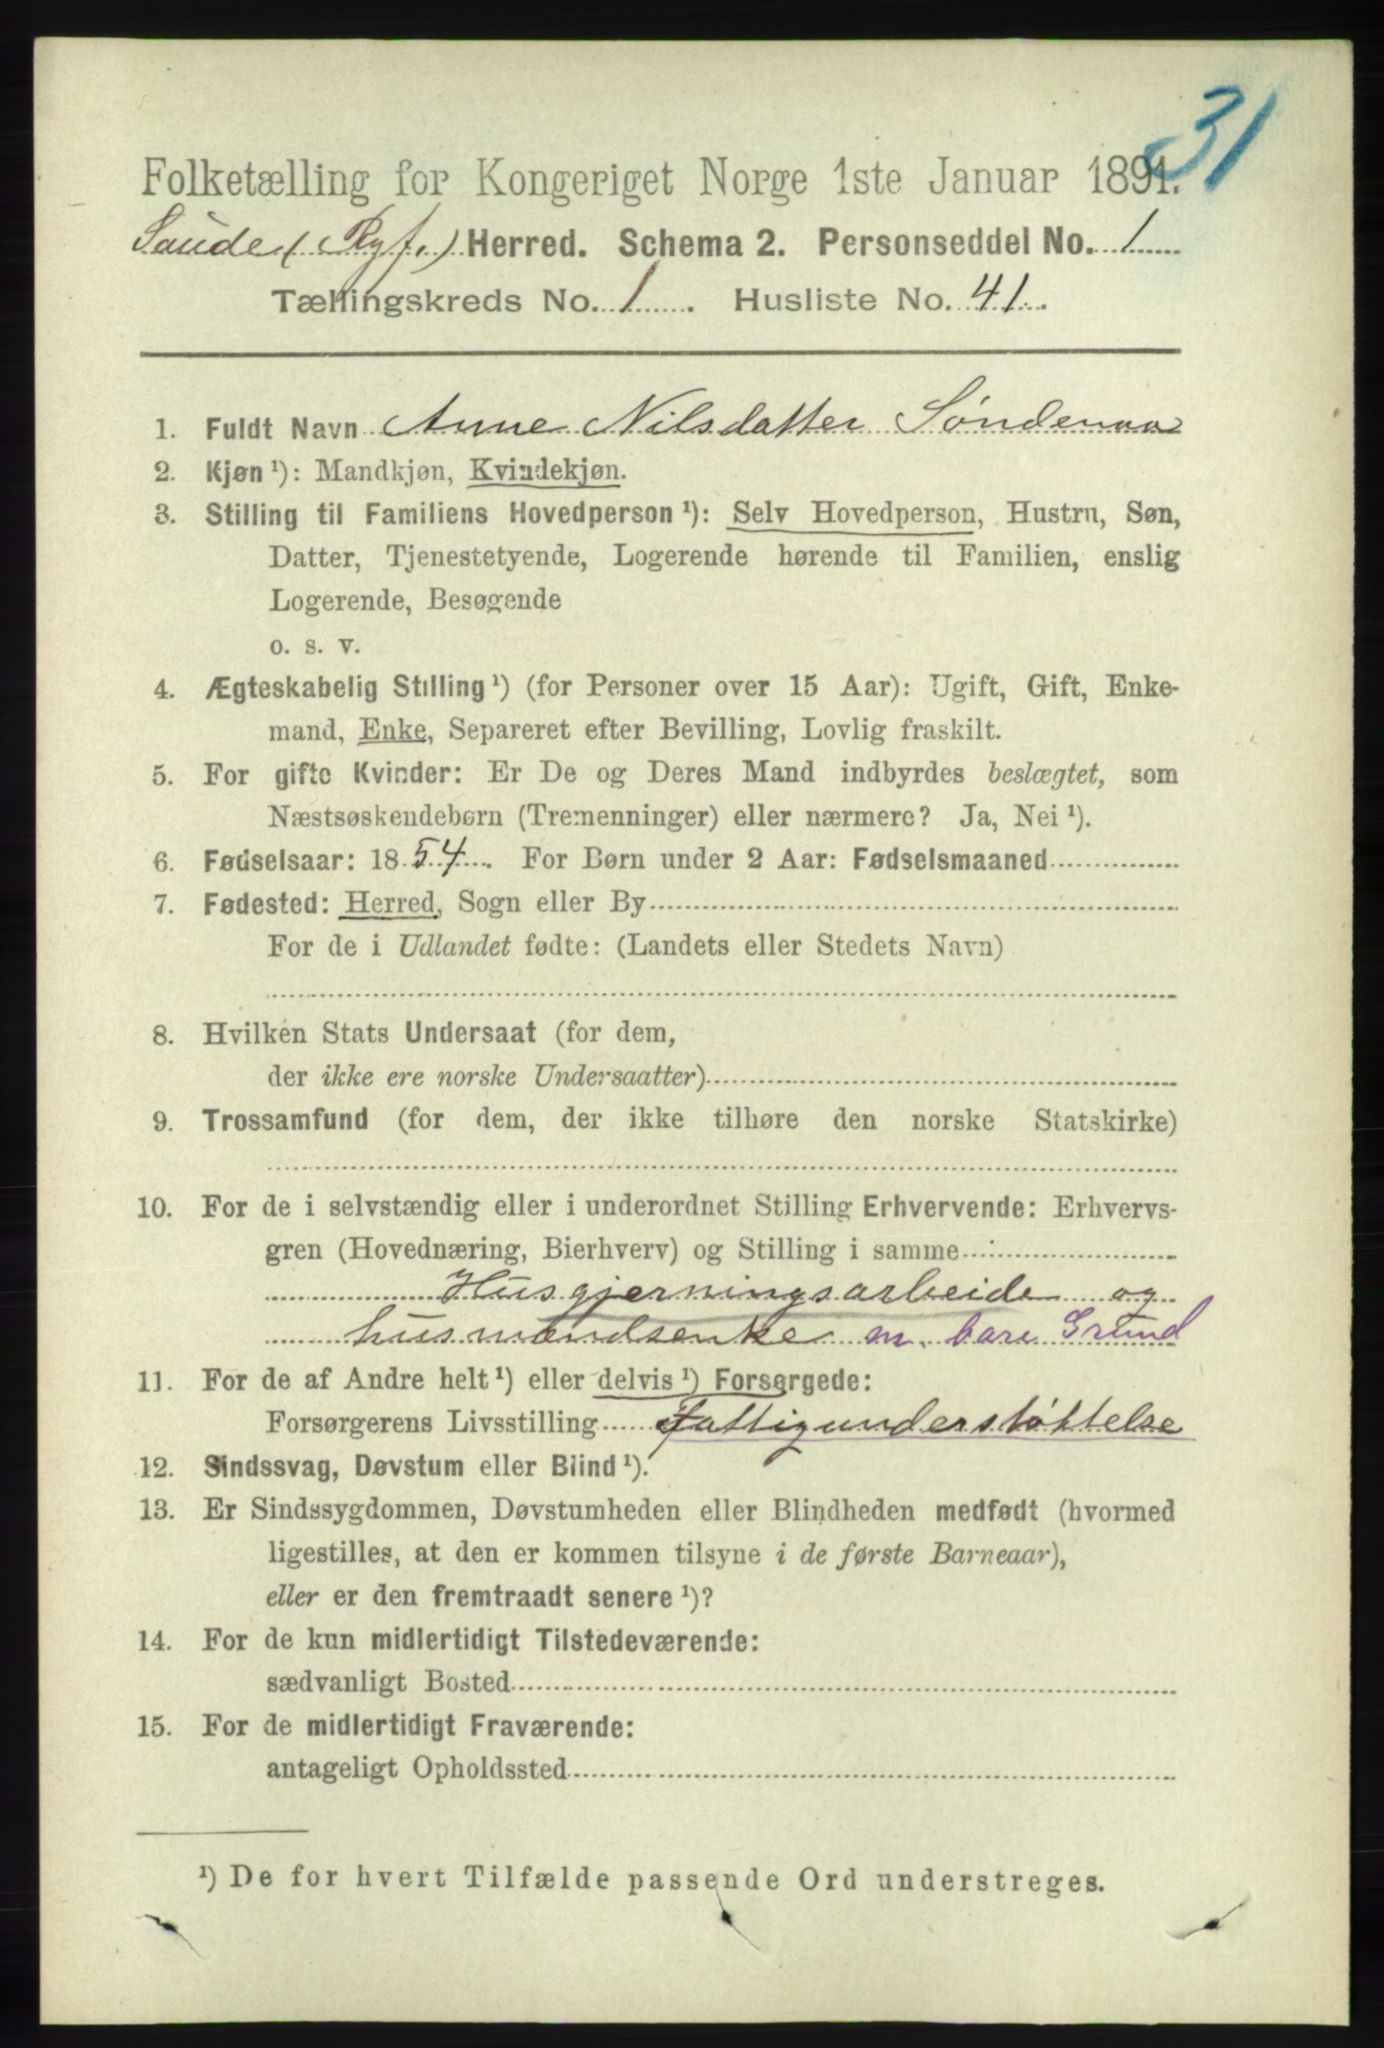 31
Folketælling for Kongeriget Norge 1ste Januar 1891.
Saude (Ryf.) Herred. Schema 2. Personseddel No. 1
Tællingskreds No. 1. Husliste No. 41.
1. Fuldt Navn Anne Nilsdatter Søndenaa
2. Kjøn ¹): Mandkjøn, Kvindekjøn.
3. Stilling til Familiens Hovedperson ¹): Selv Hovedperson, Hustru, Søn,
Datter, Tjenestetyende, Logerende hørende til Familien, enslig
Logerende, Besøgende
o. s. v.
4. Ægteskabelig Stilling ¹) (for Personer over 15 Aar): Ugift, Gift, Enke-
mand, Enke, Separeret efter Bevilling, Lovlig fraskilt.
5. For gifte Kvinder: Er De og Deres Mand indbyrdes beslægtet, som
Næstsøskendebørn (Tremenninger) eller nærmere? Ja, Nei ¹).
6. Fødselsaar: 1854. For Børn under 2 Aar: Fødselsmaaned
7. Fødested: Herred, Sogn eller By
For de i Udlandet fødte: (Landets eller Stedets Navn)
8. Hvilken Stats Undersaat (for dem,
der ikke ere norske Undersaatter)
9. Trossamfund (for dem, der ikke tilhøre den norske Statskirke)
10. For de i selvstændig eller i underordnet Stilling Erhvervende: Erhvervs-
gren (Hovednæring, Bierhverv) og Stilling i samme
Husgjerningsarbeide og
husmandsenke m. bare Grund
11. For de af Andre helt ¹) eller delvis ¹) Forsørgede:
Forsørgerens Livsstilling Fattigunderstøttelse
12. Sindssvag, Døvstum eller Blind ¹).
13. Er Sindssygdommen, Døvstumheden eller Blindheden medfødt (hvormed
ligestilles, at den er kommen tilsyne i de første Barneaar),
eller er den fremtraadt senere ¹)?
14. For de kun midlertidigt Tilstedeværende:
sædvanligt Bosted
15. For de midlertidigt Fraværende:
antageligt Opholdssted
¹) De for hvert Tilfælde passende Ord understreges.